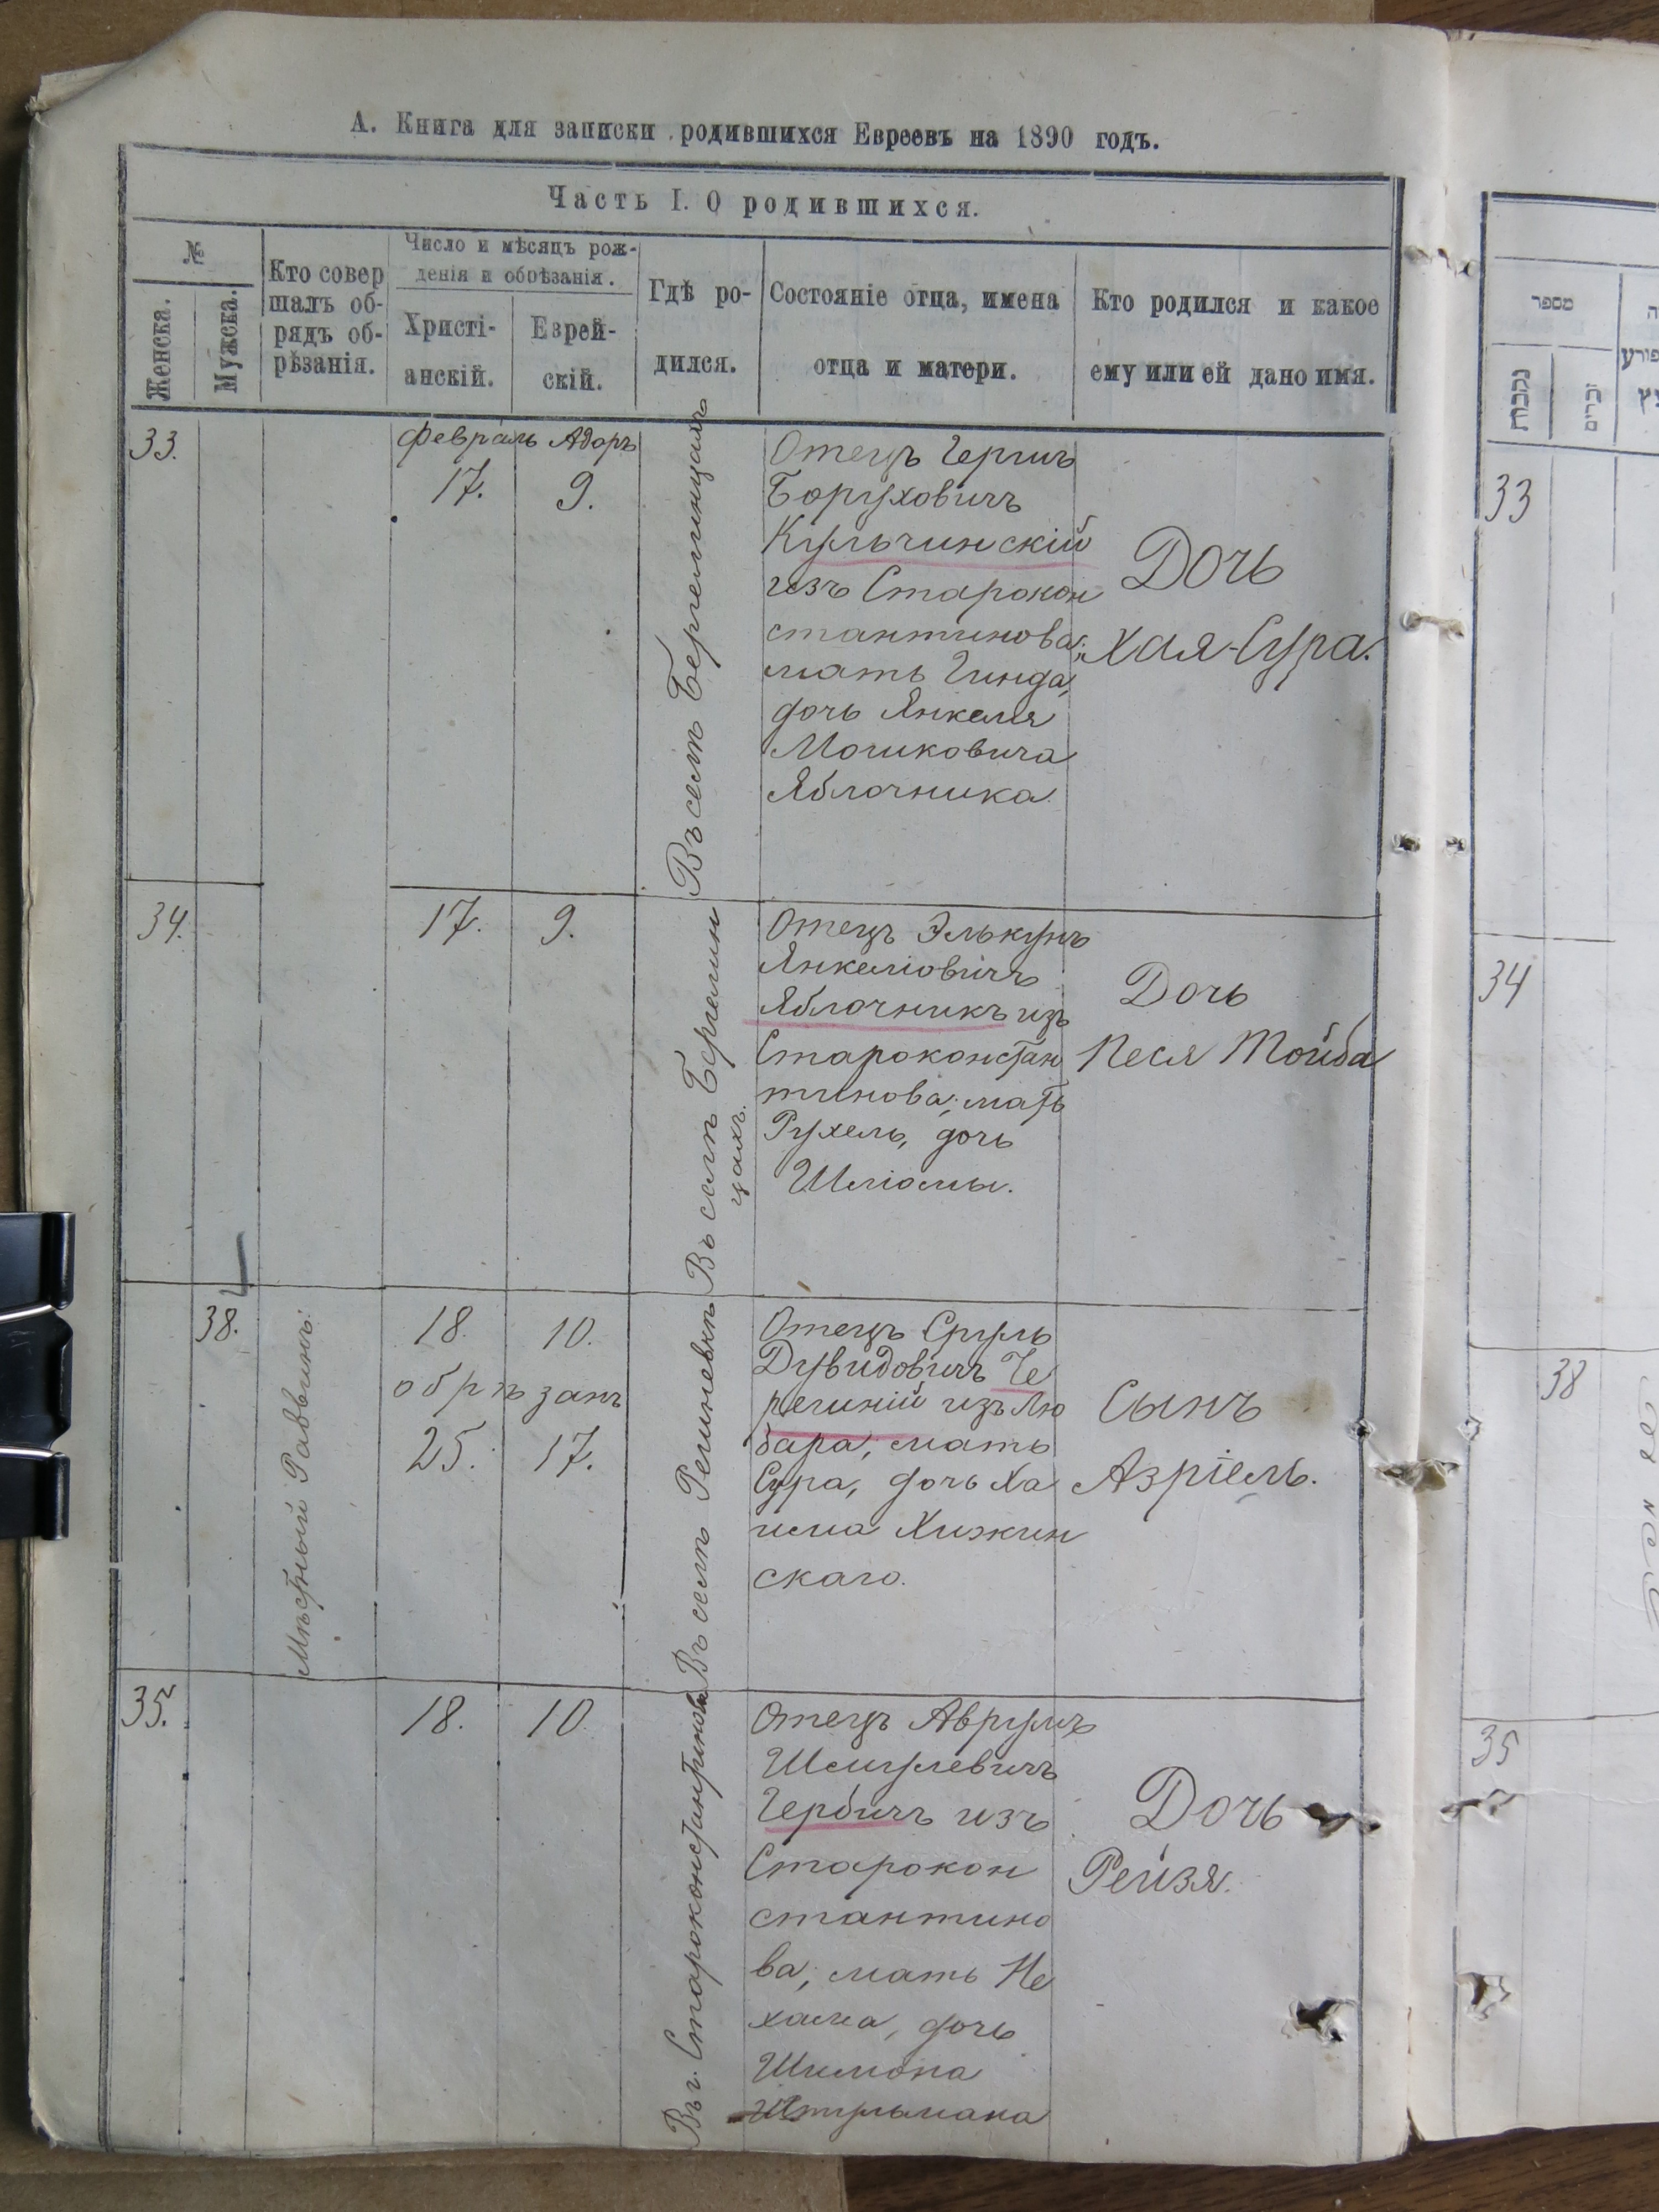 А. Книга для записки родившихся Евреевъ на 1890 годъ.
Часть I. О родившихся.
№
Женска.
Мужска.
Кто совер
шалъ об-
рядъ об-
рѣзанія.
Число и мѣсяцъ рож-
денія и обрѣзанія.
Христі-
анскій.
Еврей-
скій.
Гдѣ ро-
дился.
Состояніе отца, имена
отца и матери.
Кто родился и какое
ему или ей дано имя.
33.
Февраль Адоръ
17.
9.
Въ селѣ
Отецъ Гершъ
Боруховичъ
Кульчинскій
изъ Старокон
стантинова;
мать Гинда,
дочь Янкеля
Мошковича
Яблочника.
Дочь
Хая-Сура.
34.
17.
9.
Въ селѣ
цахъ.
Отецъ Элькунъ
Янкеліовичъ
Яблочникъ изъ
Староконстан
тинова; мать
Рухель, дочь
Шліомы.
Дочь
Песя Тойба
38.
Мѣстный Раввинъ.
18.
10.
обрѣзанъ
25.
17.
Въ селѣ Решневкѣ
Отецъ Сруль
Дувидовичъ Че
репиній изъ Лю
бара; мать
Сура, дочь Ха
има Хижин
скаго.
Сынъ
Азріель.
35.
18.
10.
Въ г. Староконстантиновѣ
Отецъ Аврумъ
Шмулевичъ
Гербичъ изъ
Старокон
стантино
ва; мать Не
хама, дочь
Шимона
Штульмана
Дочь
Рейзя.
מספר
נקבות
זכרים
33
34
38
35